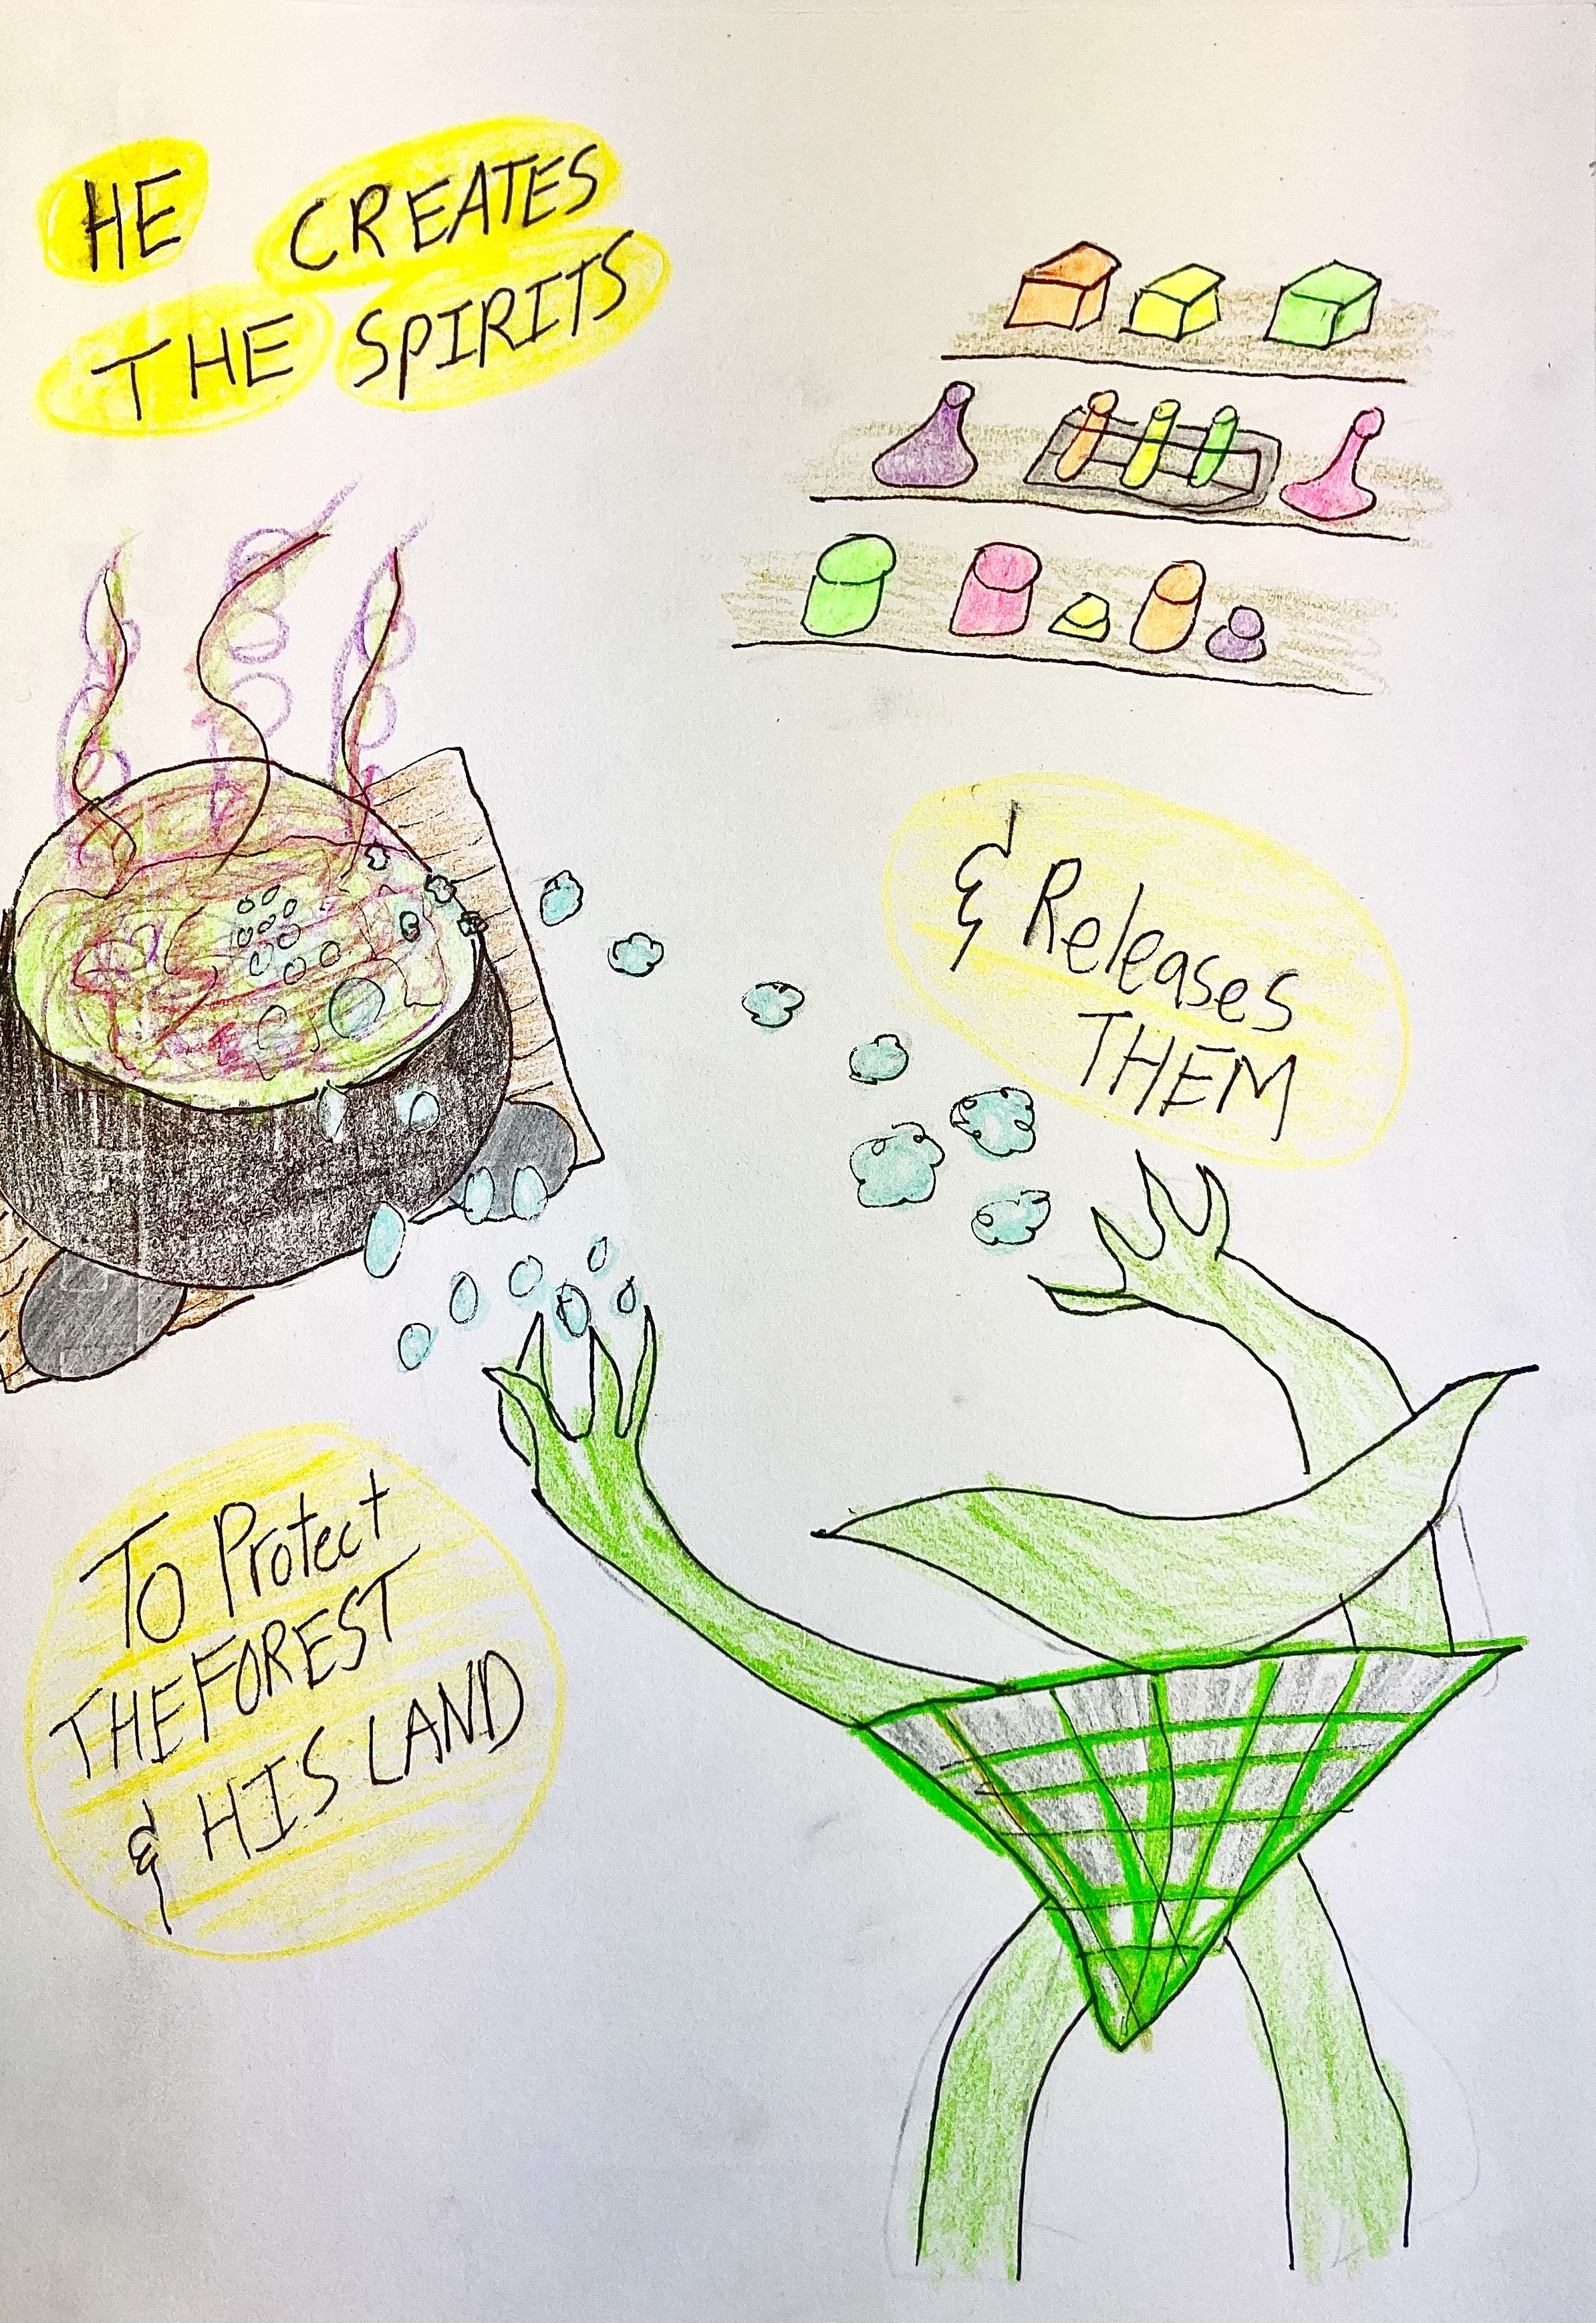 HE CREATES
THE SPIRITS
& Releases
THEM
To Protect
THE FOREST
& HIS LAND